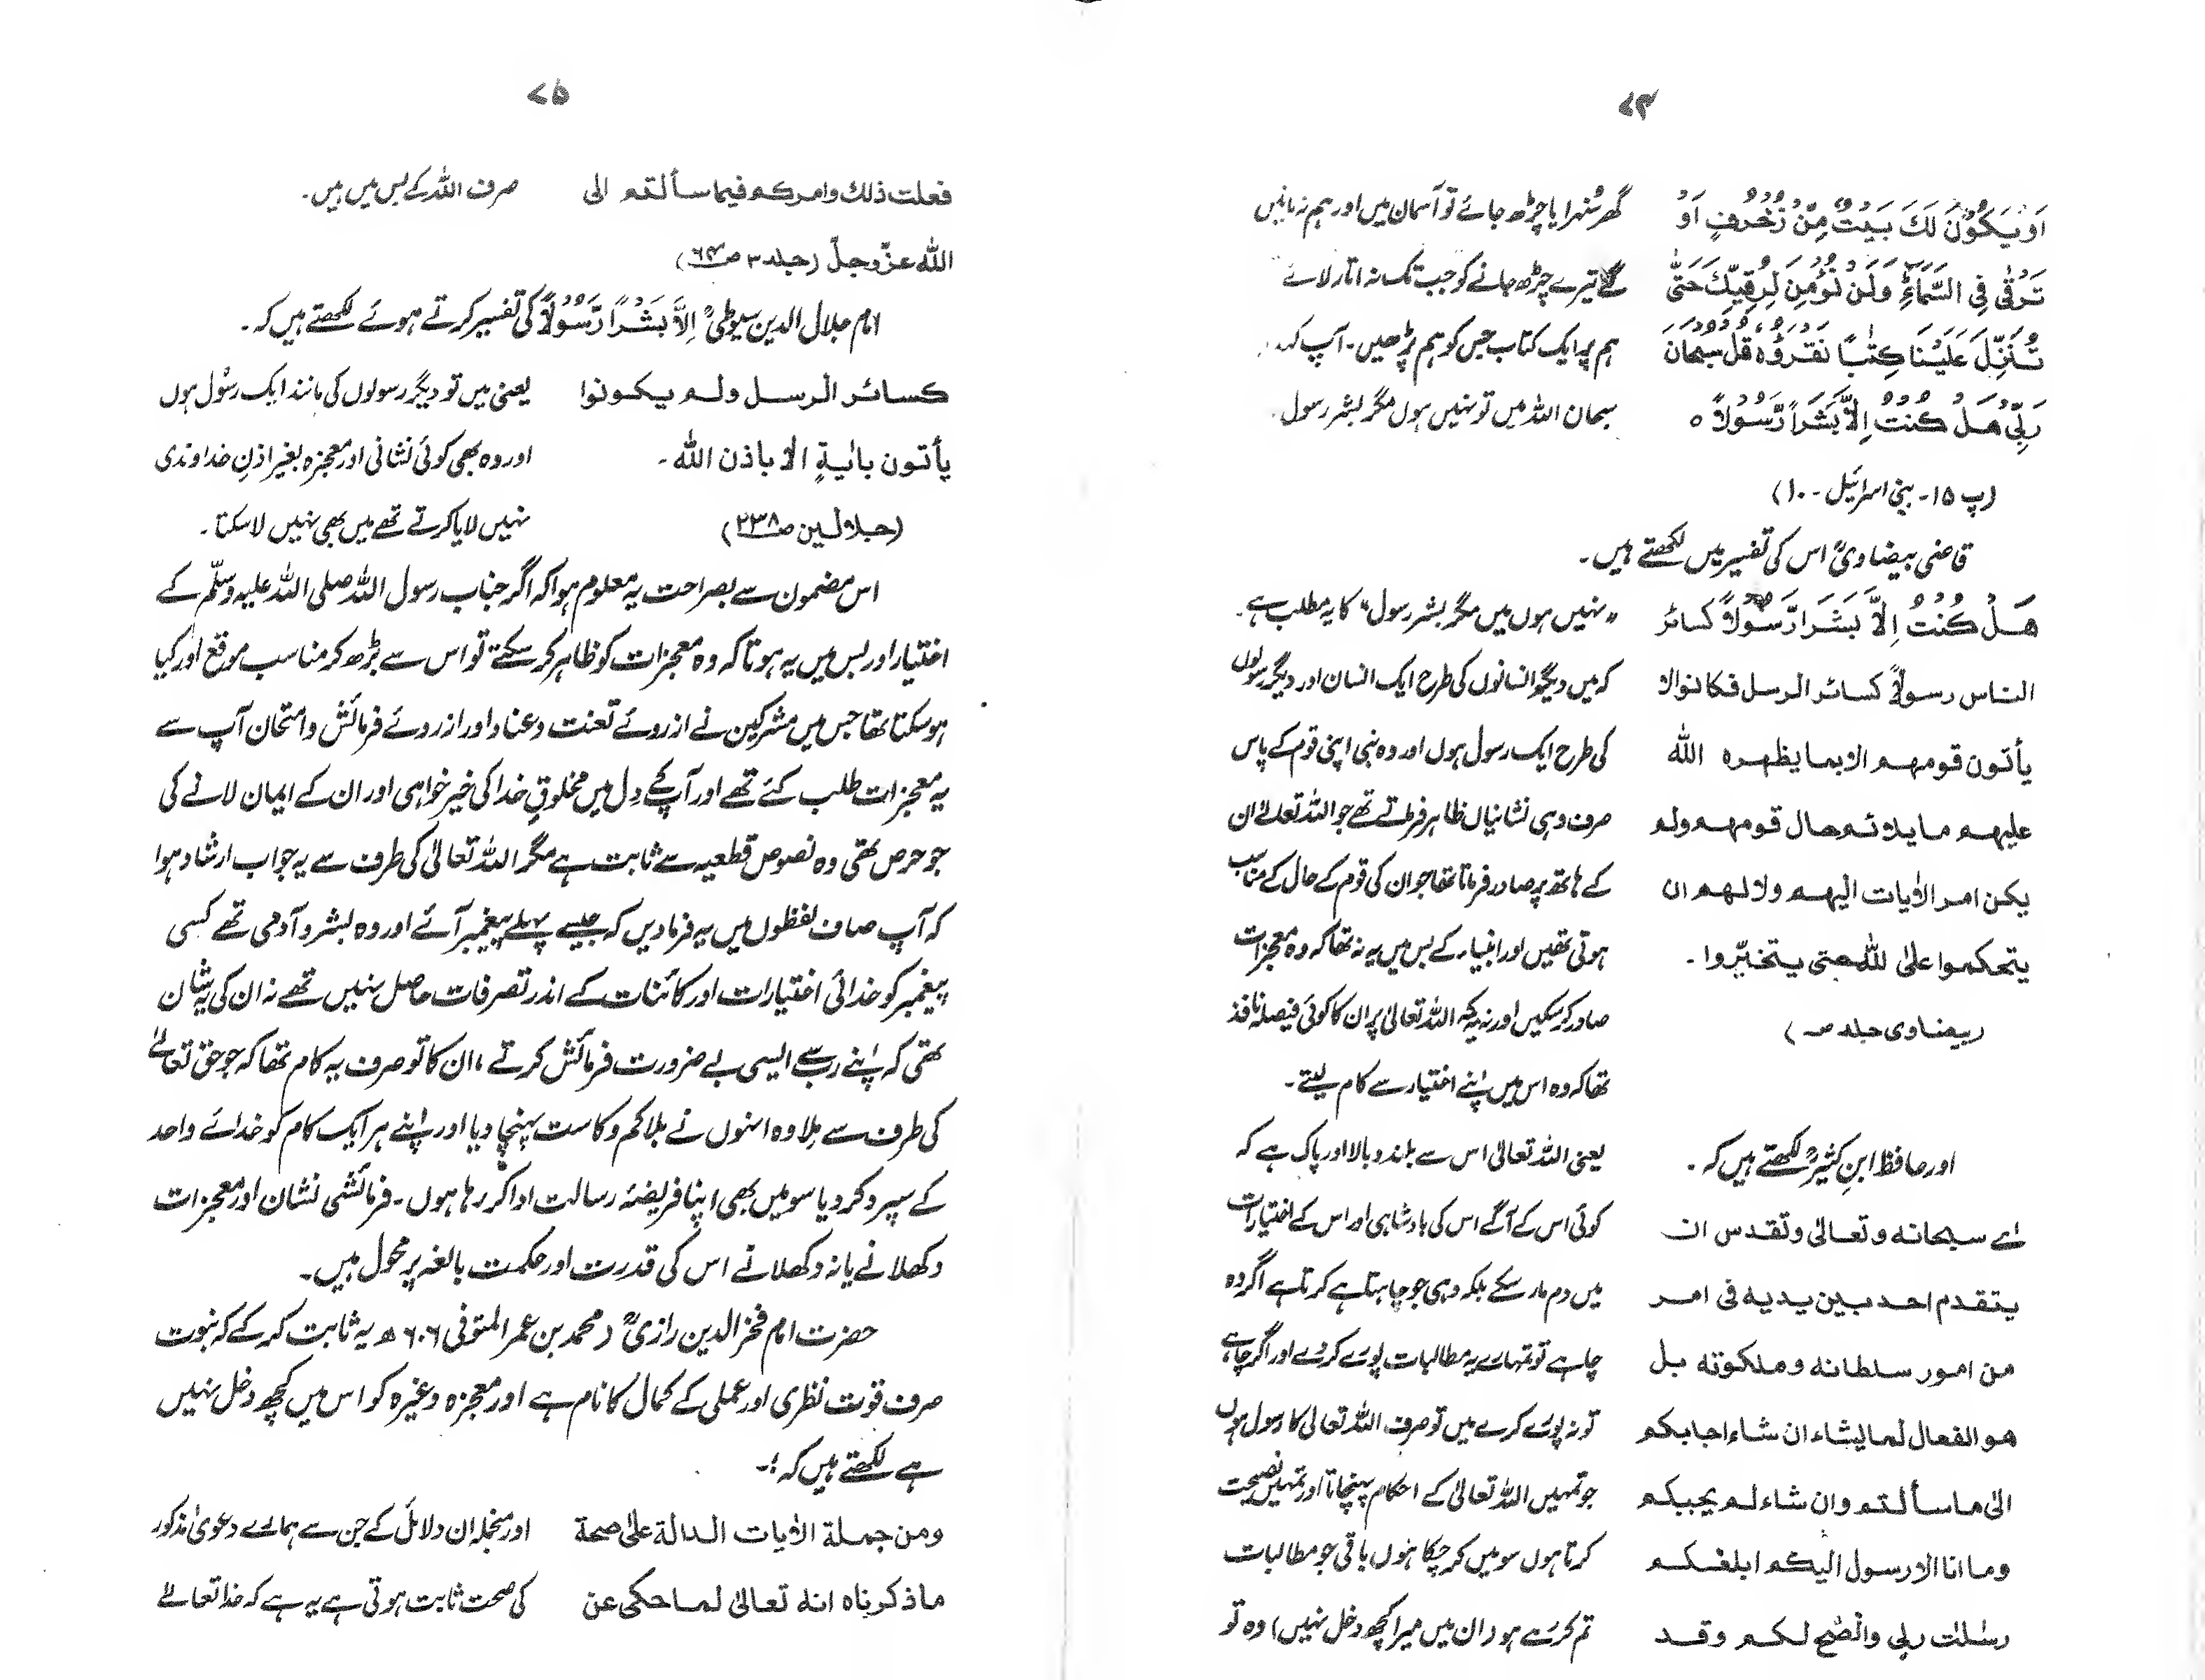 ۷۴
اَوۡ یَکُوۡنَ لَکَ بَیۡتٌ مِّنۡ زُخۡرُفٍ اَوۡ
تَرۡقٰی فِی السَّمَآءِ وَلَنۡ نُّؤۡمِنَ لِرُقِیِّکَ حَتّٰی
تُنَزِّلَ عَلَیۡنَا کِتٰبًا نَّقۡرَؤُہٗ قُلۡ سبحان
رَبِّیۡ ھَلۡ کُنۡتُ اِلَّا بَشَرًا رَّسُوۡلًا ہ
(پ ۱۵ - بنی اسرائیل - ۱۰)
گھر سُنہرا یا چڑھ جائے تو آسمان میں اور ہم نہ مانیں
گے تیرے چڑھ جانے کو جب تک نہ اتار لائے
ہم پر ایک کتاب جس کو ہم پڑھیں۔ آپ
سبحان اللہ میں تو نہیں ہوں مگر بشر رسول۔
قاضی بیضاویؒ اس کی تفسیر میں لکھتے ہیں۔
ھَلۡ کُنۡتُ اِلَّا بَشَرًا رَّسُوۡلًا کسائر
الناس رسولاً کسائر الرسل فکانوا لا
یأتون قومھم الا بما یظھرہ اللہ
علیھم ما یلائم حال قومھم ولم
یکن امر الاٰیات الیھم ولا لھم ان
یتحکموا علیٰ اللہ حتی یتخیّروا۔
(بیضاوی جلد صـ )
”نہیں ہوں میں مگر بشر رسول“ کا یہ مطلب ہے۔
کہ میں دیگر انسانوں کی طرح ایک انسان اور دیگر رسولوں
کی طرح ایک رسول ہوں اور وہ نبی اپنی قوم کے پاس
صرف وہی نشانیاں ظاہر فرماتے تھے جو اللہ تعالےٰ ان
کے ہاتھ پر صادر فرماتا تھا جو ان کی قوم کے حال کے مناسب
ہوتی تھیں اور انبیاء کے بس میں یہ نہ تھا کہ وہ معجزات
صادر کر سکیں اور نہ یہ کہ اللہ تعالیٰ پر ان کا کوئی فیصلہ نافذ
تھا کہ وہ اس میں اپنے اختیار سے کام لیتے۔
اور حافظ ابنِ کثیرؒ لکھتے ہیں کہ۔
اے سبحانہ وتعالیٰ وتقدس ان
یتقدم احد بین یدیہ فی امر
من امور سلطانہ وملکوتہ بل
ھو الفعال لما یشاء ان شاء اجابکم
الیٰ ما سألتم وان شاء لم یجبکم
وما انا الا رسول الیکم ابلغکم
رسٰلٰت ربی وانصح لکم وقد
یعنی اللہ تعالیٰ اس سے بلند و بالا اور پاک ہے کہ
کوئی اس کے آگے اس کی بادشاہی اور اس کے اختیارات
میں دم مار سکے بلکہ وہی جو چاہتا ہے کرتا ہے اگر وہ
چاہے تو تمہارے یہ مطالبات پورے کر دے اور اگر چاہے
تو نہ پورے کرے میں تو صرف اللہ تعالیٰ کا رسول ہوں
جو تمہیں اللہ تعالیٰ کے احکام پہنچاتا اور تمہیں نصیحت
کرتا ہوں سو میں کر چکا ہوں باقی جو مطالبات
تم کر رہے ہو (ان میں میرا کچھ دخل نہیں) وہ تو
۷۵
فعلت ذلک وامرکم فیما سألتم الی
اللہ عزّوجلّ (جلد ۳ صـ ۶۴)
صرف اللہ کے بس میں ہیں۔
امام جلال الدین سیوطیؒ اِلَّا بَشَرًا رَّسُوۡلًا کی تفسیر کرتے ہوئے لکھتے ہیں کہ۔
کسائر الرسل ولم یکونوا
یأتون باٰیۃٍ الا باذن اللہ۔
(جلالین صـ ۲۳۸)
یعنی میں تو دیگر رسولوں کی مانند ایک رسُول ہوں
اور وہ بھی کوئی نشانی اور معجزہ بغیر اذنِ خداوندی
نہیں لایا کرتے تھے میں بھی نہیں لا سکتا۔
اس مضمون سے بصراحت یہ معلوم ہوا کہ اگر جناب رسول اللہ صلی اللہ علیہ وسلّم کے
اختیار اور بس میں یہ ہوتا کہ وہ معجزات کو ظاہر کر سکتے تو اس سے بڑھ کر مناسب موقع اور کیا
ہو سکتا تھا جس میں مشرکین نے ازروئے تعنت و عناد اور ازروئے فرمائش و امتحان آپ سے
یہ معجزات طلب کئے تھے اور آپ کے دِل میں مخلوقِ خدا کی خیر خواہی اور ان کے ایمان لانے کی
جو حرص تھی وہ نصوص قطعیہ سے ثابت ہے مگر اللہ تعالیٰ کی طرف سے یہ جواب ارشاد ہوا
کہ آپ صاف لفظوں میں یہ فرمادیں کہ جیسے پہلے پیغمبر آئے اور وہ بشر و آدمی تھے کسی
پیغمبر کو خدائی اختیارات اور کائنات کے اندر تصرفات حاصل نہیں تھے نہ ان کی یہ شان
تھی کہ اپنے رب سے ایسی بے ضرورت فرمائش کرتے، ان کا تو صرف یہ کام تھا کہ جو حق تعالےٰ
کی طرف سے ملا وہ انہوں نے بلا کم و کاست پہنچا دیا اور اپنے ہر ایک کام کو خدائے واحد
کے سپرد کر دیا سو میں بھی اپنا فریضۂ رسالت ادا کر رہا ہوں۔ فرمائشی نشان اور معجزات
دکھلانے یا نہ دکھلانے اس کی قدرت اور حکمت بالغہ پر محمول ہیں۔
حضرت امام فخر الدین رازیؒ (محمد بن عمر المتوفی ۶۰۶ ھ یہ ثابت کر کے کہ نبوت
صرف قوت نظری اور عملی کے کمال کا نام ہے اور معجزہ وغیرہ کو اس میں کچھ دخل نہیں
ہے لکھتے ہیں کہ :۔
ومن جملۃ الاٰیات الدالۃ علیٰ صحۃ
ما ذکرناہ انہ تعالیٰ لما حکی عن
اور منجملہ ان دلائل کے جن سے ہمارے دعویٰ مذکور
کی صحت ثابت ہوتی ہے یہ ہے کہ خدا تعالےٰ